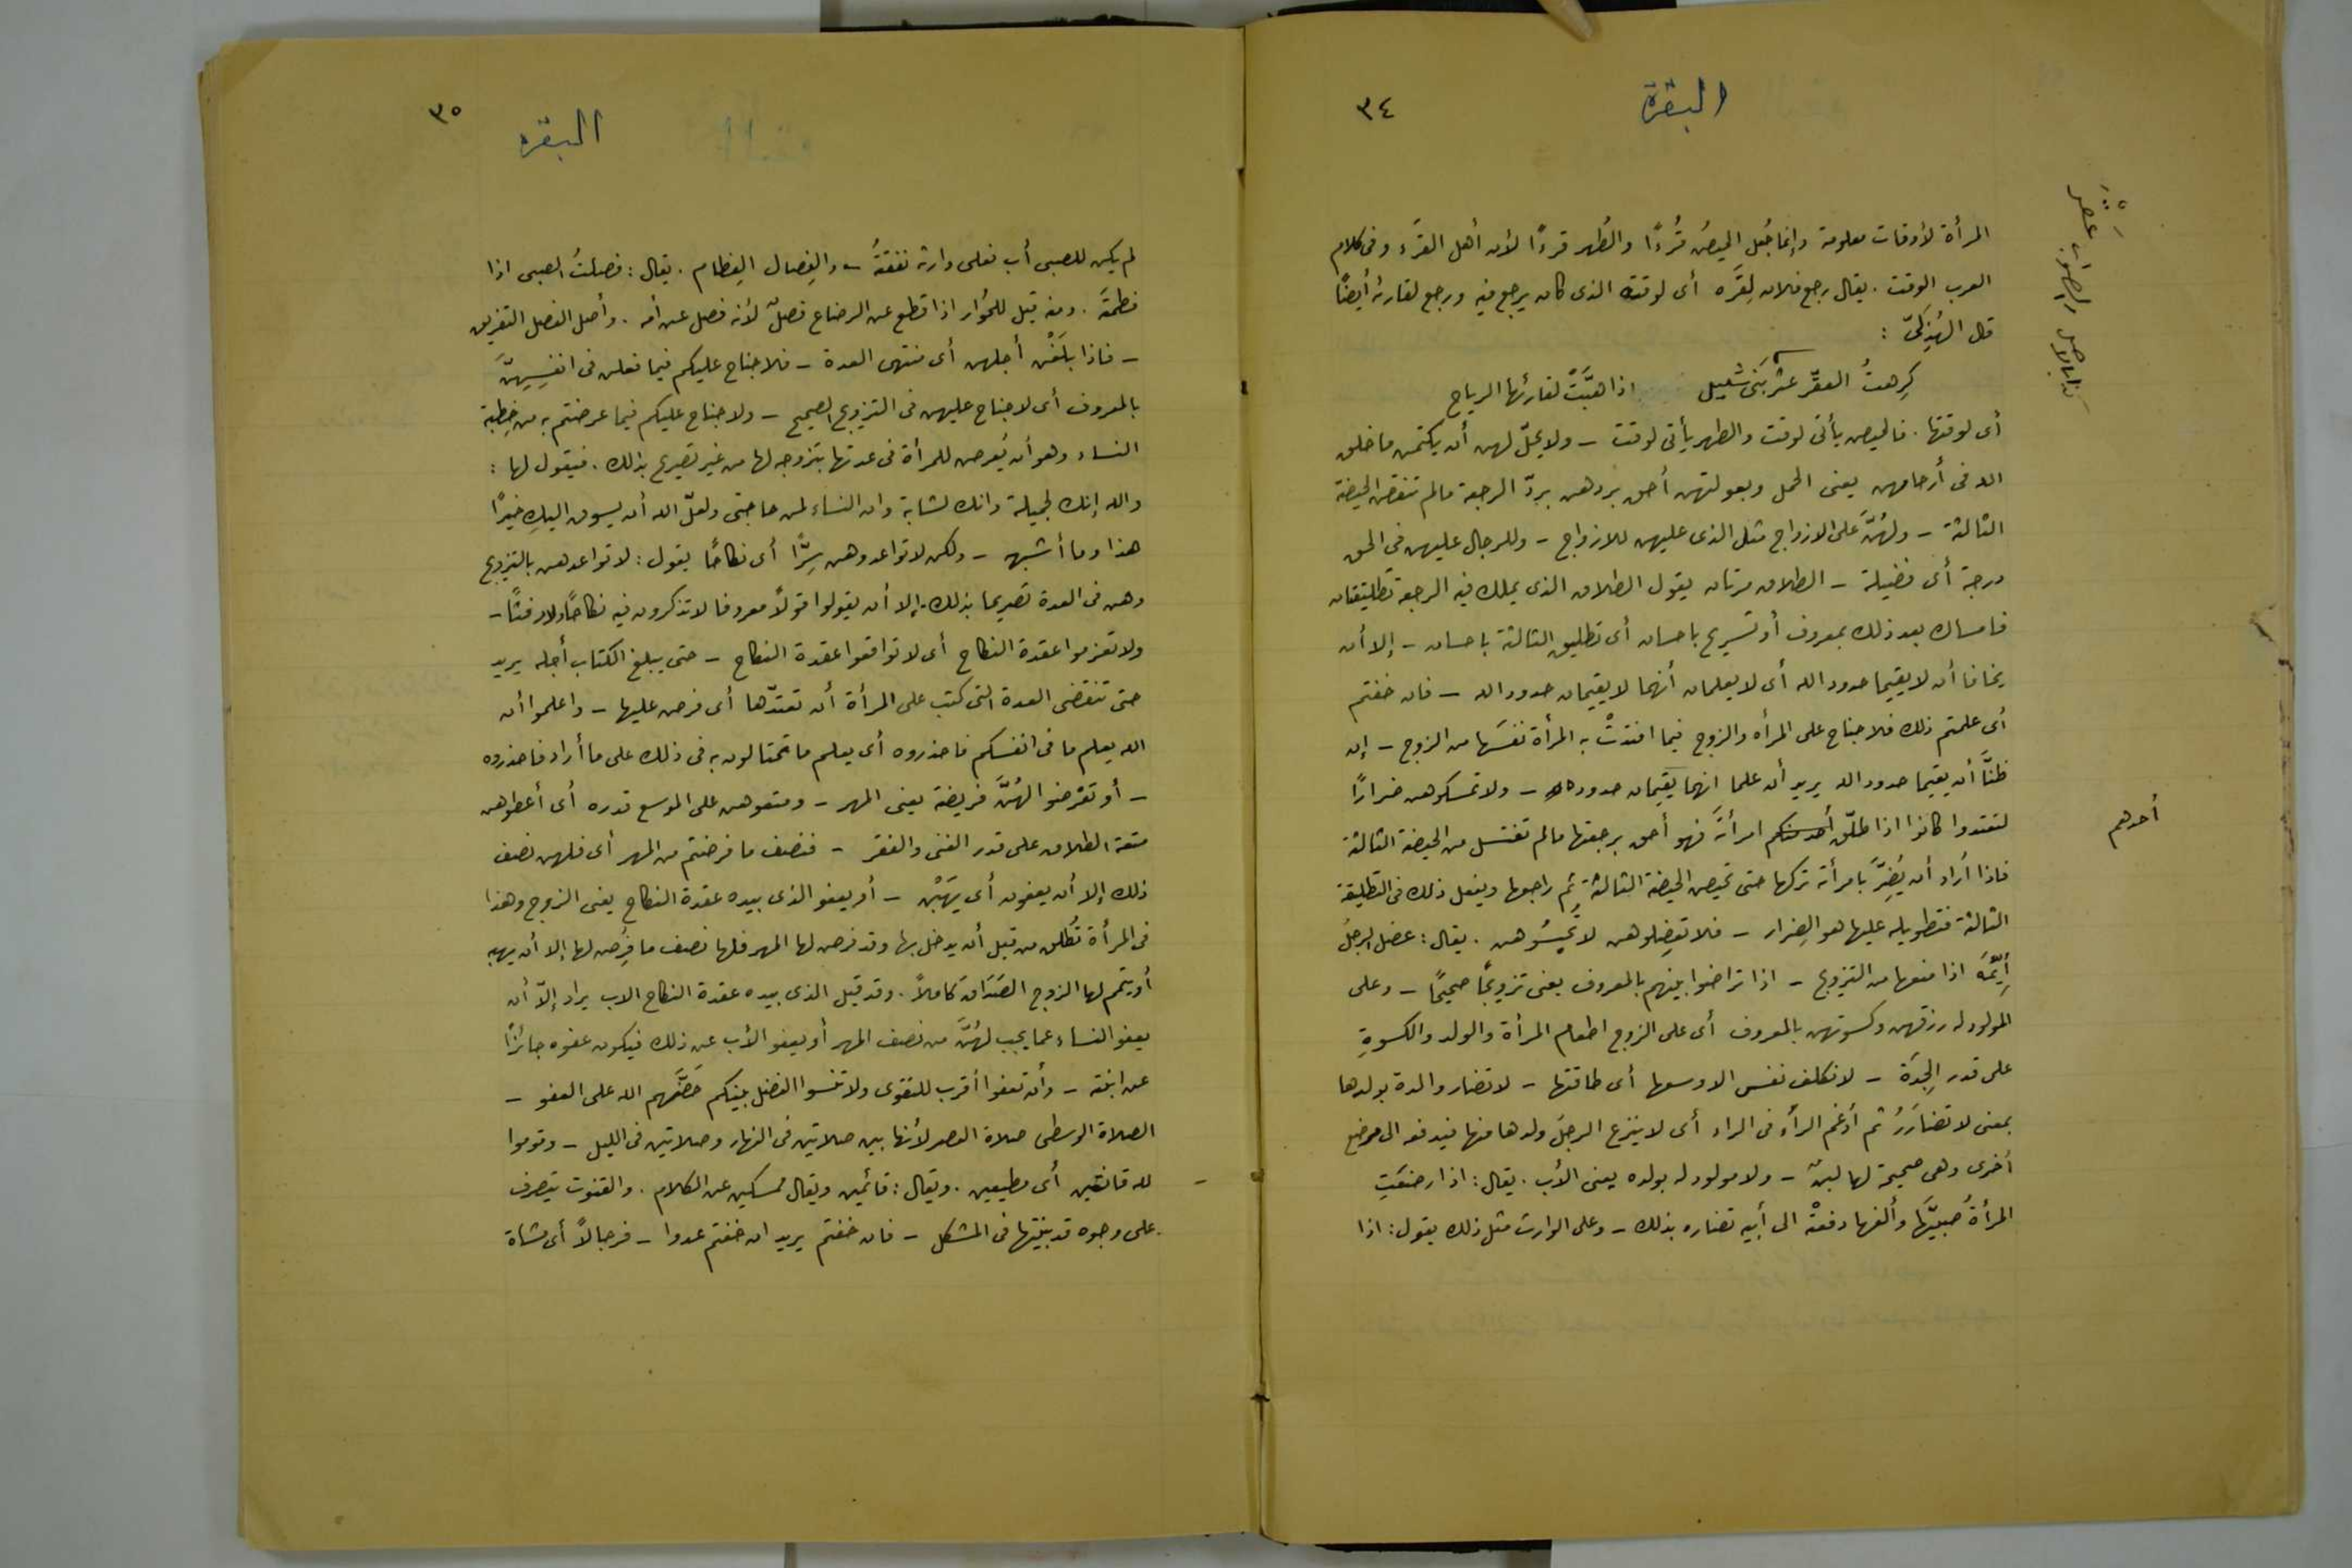 البقرة
٣٤
المرأة لأوقات معلومة وإنما جُعل الحيضُ قُرءًا والطُهر قرءًا لأن أهل القرء وفى كلام
العرب الوقت . يقال رجع فلان لِقَرْء أى لوقته الذى كان يرجع فيه ورجع لقارئه أيضًا
قال الهُذَلىّ :
كَرِهتُ العقْر عقر بَنى شليل اذا هَبَّتْ لقارئها الرياح
أى لوقتها . فالحيض يأتى لوقت والطهر يأتى لوقت - ولا يحلّ لهن أن يكتمن ما خلق
الله فى أرحامهن يعنى الحمل وبعولتهن أحق بردهن بردّ الرجعة مالم تنقض الحيضة
الثالثة - ولهُنَّ على الازواج مثل الذى عليهن للازواج - وللرجال عليهن فى الحق
درجة أى فضيلة - الطلاق مرتان يقول الطلاق الذى يملك فيه الرجعة تطليقتان
فامساك بعد ذلك بمعروف أو تسريح باحسان أى تطليق الثالثة باحسان - إلا أن
يخافا أن لا يقيما حدود الله أى لا يعلمان أنهما لا يقيمان حدود الله - فان خفتم
أى علمتم ذلك فلا جناح على المرأه والزوج فيما افتدتْ به المرأة نفسَها من الزوج - إن
ظنَّا أن يقيما حدود الله يريد أن علما انهما يقيمان حدوده - ولا تمسكوهن ضرارًا
لتعتدوا كانوا اذا طلّق أحدكم امرأته فهو أحق برجعتها مالم تغتسل من الحيضة الثالثة
أحدهم
فاذا أراد أن يُضِرَّ بامرأته تركها حتى تحيض الحيضة الثالثة ثم راجعها ويفعل ذلك فى التطليقة
الثالثة فتطويله عليها هو الضِرار - فلا تعضِلوهن لا تحبِسُوهن . يقال : عضل الرجلُ
أيِّمَه اذا منعها من التزويج - اذا تراضوا بينهم بالمعروف يعنى تزويجًا صحيحًا - وعلى
المولود له رزقهن وكسوتهن بالمعروف أى على الزوج اطعام المرأة والولد والكسوةِ
على قدر الجِدَة - لا تكلف نفس الا وسعها أى طاقتها - لا تضار والدة بولدها
بمعنى لا تضارَرُ ثم أدغم الراء فى الراء أى لا ينزع الرجلُ ولدها منها فيدفعه الى مرضع
أخرى وهى صحيحة لها لبنٌ - ولا مولود له بولده يعنى الأب . يقال : اذا رضعَتِ
المرأةُ صبيَّها وألفها دفعتْه الى أبيه تضاره بذلك - وعلى الوارث مثل ذلك يقول : اذا
البقره
٣٥
لم يكن للصبى أب فعلى وارثه نفقتُه - والفِصال الفِطام . يقال : فصلتُ الصبى اذا
فطمتَه . ومنه قيل للحُوار اذا قطع عن الرضاع فصلٌ لأنه فصل عن أمه . وأصل الفصل التفريق
- فاذا بلَغْن أجلهن أى منتهى العدة - فلا جناح عليكم فيما فعلن فى انفسِهنّ
بالمعروف أى لا جناح عليهن فى التزويج الصحيح - ولا جناح عليكم فيما عرضتم به من خِطبة
النساء وهو أن يُعرض للمرأة فى عدتها بتزوجه لها من غير تصريح بذلك . فيقول لها :
والله إنك لجميلة وانك لشابة وان النساء لمن حاجتى ولعلّ الله أن يسوق اليكِ خيرًا
هذا وما أشبهه - ولكن لا تواعدوهن سِرًّا أى نكاحًا يقول : لا تواعدهن بالتزويج
وهن فى العدة تصريحا بذلك . إلا أن يقولوا قولاً معروفا لا تذكرون فيه نكاحًا ولا رفثًا -
ولا تعزموا عقدة النكاح أى لا تواقعوا عقدة النكاح - حتى يبلغ الكتاب أجله يريد
حتى تنقضى العدة التى كتب على المرأة أن تعتدّها أى فرض عليها - واعلموا أن
الله يعلم ما فى انفسكم فاحذروه أى يعلم ما تحتالون به فى ذلك على ما أراد فاحذروه
- أو تفرضوا لهُنَّ فريضة يعنى المهر - ومتعوهن على الموسع قدره أى أعطوهن
متعة الطلاق على قدر الغنى والفقر - فنصف ما فرضتم من المهر أى فلهن نصف
ذلك إلا أن يعفون أى يهَبْن - أو يعفو الذى بيده عقدة النكاح يعنى الزوج وهذا
فى المرأة تُطَلَق من قبل أن يدخل بها وقد فرض لها المهر فلها نصف ما فُرِض لها إلا أن يهبه
أو يتمم لها الزوج الصَدَاق كاملاً . وقد قيل الذى بيده عقدة النكاح الاب يراد إلاّ أن
يعفو النساء عما يجب لهُنَّ من نصف المهر أو يعفو الأب عن ذلك فيكون عفوه جائزًا
عن ابنته - وأن تعفوا أقرب للتقوى ولا تنسوا الفضل بينكم حَضَّهم الله على العفو -
الصلاة الوسطى صلاة العصر لأنها بين صلاتين فى النهار وصلاتين فى الليل - وقوموا
لله قانتين أى مطيعين . ويقال : قائمين ويقال ممسكين عن الكلام . والقنوت يتصرف
على وجوه قد بينتها فى المشكل - فان خفتم يريد ان خفتم عدوا - فرجالاً أى مشاة